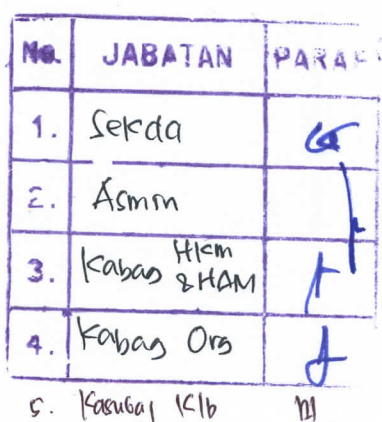 No. JABATAN PARAF
1. Sekda
2. Asmin
3. Kabag Hkm & HAM
4. Kabag Org
5. Kasubag Klb